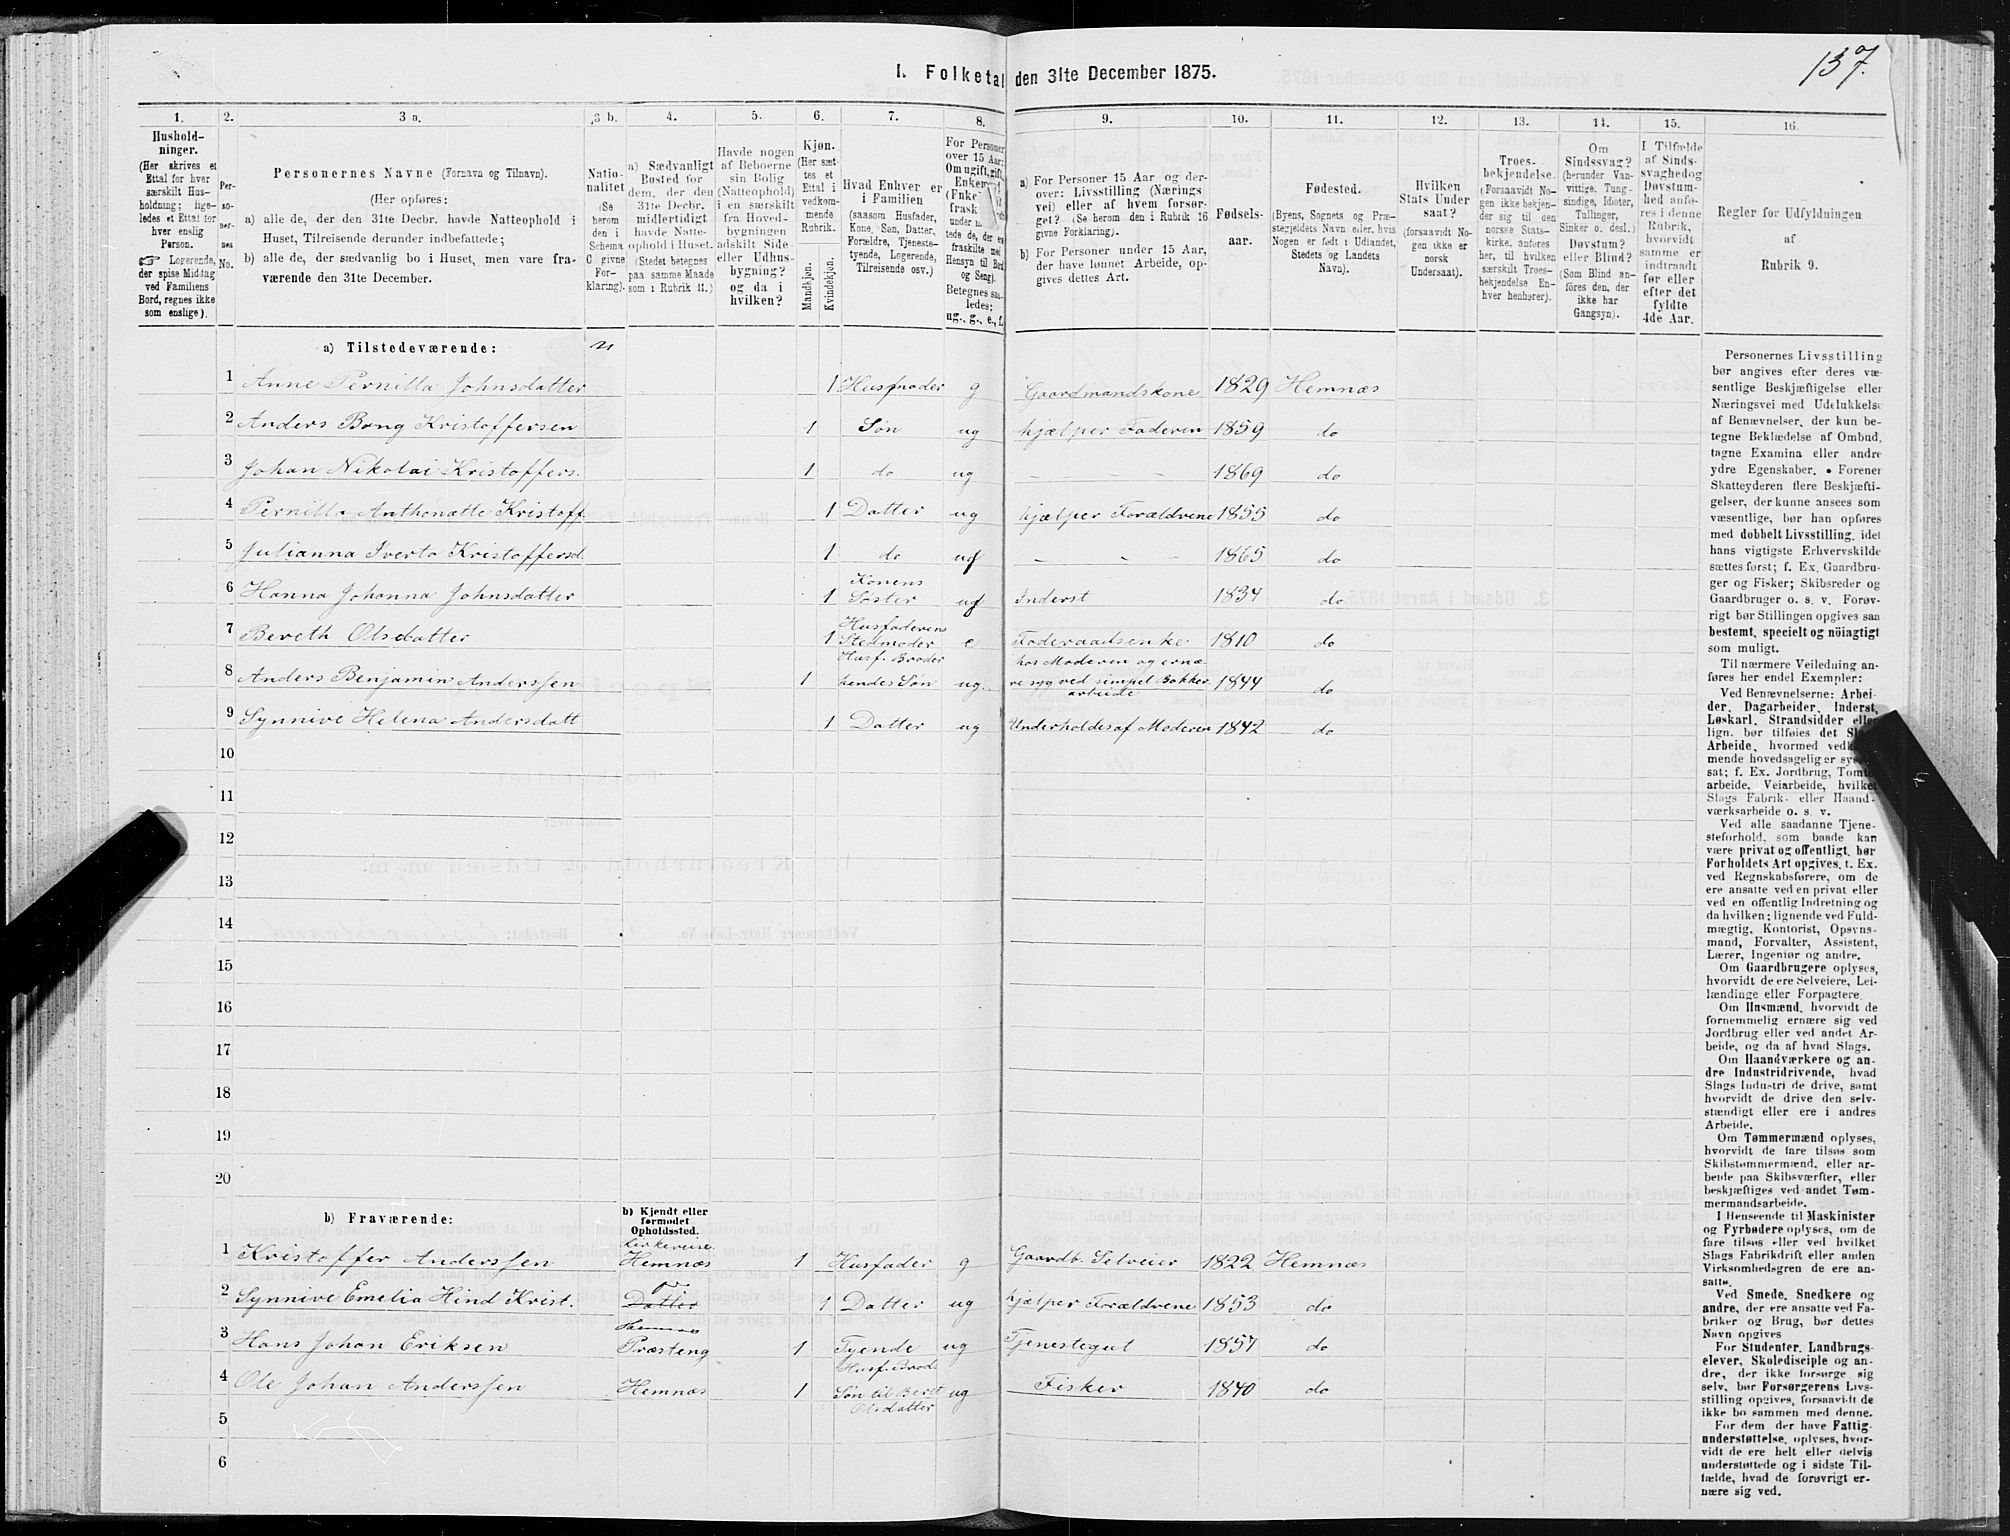 137.
I. Folketal den 31te December 1875.
1.
Hushold-
ninger.
(Her skrives et
Ettal for hver
særskilt Hus-
holdning; lige-
ledes et Ettal for
hver enslig
Person.
☞ Logerende,
der spise Middag
ved Familiens
Bord, regnes ikke
som enslige).
2.
Per-
so-
ner-
nes
No.
3 a.
Personernes Navne (Fornavn og Tilnavn).
(Her opføres:
a) alle de, der den 31te Decbr. havde Natteophold i
Huset, Tilreisende derunder indbefattede;
b) alle de, der sædvanlig bo i Huset, men vare fra-
værende den 31te December.
3 b.
Natio-
nalitet
(Se
herom
den i
Schema
C givne
For-
klaring).
4.
a) Sædvanligt
Bosted for
dem, der den
31te Decbr.
midlertidigt
havde Natte-
ophold i Huset.
(Stedet betegnes
paa samme Maade
som i Rubrik 11.)
5.
Havde nogen
af Beboerne
sin Bolig
(Natteophold)
i en særskilt
fra Hoved-
bygningen
adskilt Side-
eller Udhus-
bygning?
og da i
hvilken?
6.
Kjøn.
(Her sæt-
tes et
Ettal i
vedkom-
mende
Rubrik.
Mandkjøn.
Kvindekjøn.
7.
Hvad Enhver er
i Familien
(saasom Husfader,
Kone, Søn, Datter,
Forældre, Tjeneste-
tyende, Logerende,
Tilreisende osv.)
8.
For Personer
over 15 Aar:
Om ugift, gift,
Enkem
(Enke
frask
under
tede de, der ere
fraskilte med
Hensyn til Bord
og Seng).
Betegnes saa-
ledes:
ug., g., e., f.
9.
a) For Personer 15 Aar og der-
over: Livsstilling (Nærings
vei) eller af hvem forsør-
get? (Se herom den i Rubrik 16
givne Forklaring).
b) For Personer under 15 Aar,
der have lønnet Arbeide, op-
gives dettes Art.
10.
Fødsels-
aar.
11.
Fødested.
(Byens, Sognets og Præ-
stegjeldets Navn eller, hvis
Nogen er født i Udlandet,
Stedets og Landets
Navn).
12.
Hvilken
Stats Under
saat?
(forsaavidt No-
gen ikke er
norsk
Undersaat).
13.
Troes-
bekjendelse.
(Forsaavidt No-
gen ikke bekjen-
der sig til den
norske Stats-
kirke, anføres
her, til hvilken
særskilt Troes-
bekjendelse En-
hver henhører).
14.
Om
Sindssvag?
(herunder Van-
vittige. Tung-
sindige, Idioter,
Tullinger,
Sinker o. desl.)
Døvstum?
eller Blind?
(Som Blind an-
føres den, der
ikke har
Gangsyn).
15.
I Tilfælde
af Sinds-
svaghed og
Døvstum-
hed anfø-
res i denne
Rubrik,
hvorvidt
samme er
indtraadt
før eller
efter det
fyldte
4de Aar.
16.
Regler for Udfyldningen
af
Rubrik 9.
a) Tilstedeværende: n
1 Anne Pernilla Johnsdatter 1 Husmoder g Gaardmandskone 1829 Hemnæs
2 Anders Bang Kristoffersen 1 Søn ug hjælper Faderen 1859 do
3 Johan Nikolai Kristoffers. 1 do ug - - - 1869 do
4 Pernilla Anthonatte Kristoff. 1 Datter ug hjælper Forældrene 1855 do
5 Julianna Iverta Kristoffersd. 1 do ug - - - 1865 do
6 Hanna Johanna Johnsdatter 1 Konens Søster ug Inderst 1834 do
7 Bereth Olsdatter 1 Husfaderens Stedmoder e Foderaadsenke 1810 do
8 Anders Benjamin Anderssen 1 Husf. Broder hendes Søn ug. hos Moderen og ernæ-
re syg ved simpel Bøkker
arbeide 1844 do
9 Synnive Helena Andersdatt 1 Datter ug Underholdes af Moderen 1842 do
10
11
12
13
14
15
16
17
18
19
20
b) Fraværende:
b) Kjendt eller
formodet
Opholdssted.
1 Kristoffer Anderssen Kirkereise Hemnæs 1 Husfader g Gaardb. Selveier 1822 Hemnæs
2 Synnive Emelia Hind Krist. Datter 1 Datter ug hjælper Forældrene 1853 do
3 Hans Johan Eriksen Hemnæs Præsteng 1 Tyende ug Tjenestegut 1857 do
4 Ole Johan Anderssen Hemnæs 1 Husf. Brod. Søn til Beret Olsdatter ug Fisker 1840 do
5
6
Personernes Livsstilling
bør angives efter deres væ-
sentlige Beskjæftigelse eller
Næringsvei med Udelukkelse
af Benævnelser, der kun be-
tegne Beklædelse af Ombud,
tagne Examina eller andre
ydre Egenskaber. Forener
Skatteyderen flere Beskjæfti-
gelser, der kunne ansees som
væsentlige, bør han opføres
med dobbelt Livsstilling, idet
hans vigtigste Erhvervskilde
sættes først; f. Ex. Gaardbru-
ger og Fisker; Skibsreder og
Gaardbruger o. s. v. Forøv-
rigt bør Stillingen opgives saa
bestemt, specielt og nöiagtigt
som muligt.
Til nærmere Veiledning an-
føres her endel Exempler:
Ved Benævnelserne: Arbei-
der, Dagarbeider, Inderst,
Løskarl, Strandsidder eller
lign. bør tilføies det Sl
Arbeide, hvormed vedk
mende hovedsagelig er sys
sat; f. Ex. Jordbrug, Tomt
arbeide, Veiarbeide, hvilket
Slags Fabrik- eller Haand-
værksarbeide o. s. v.
Ved alle saadanne Tjene-
steforhold, som baade kan
være privat og offentligt, bør
Forholdets Art opgives, t. Ex.
ved Regnskabsførere, om de
ere ansatte ved en privat eller
ved en offentlig Indretning og
da hvilken; lignende ved Fuld-
mægtig, Kontorist, Opsyns-
mand, Forvalter, Assistent,
Lærer, Ingeniør og andre.
Om Gaardbrugere oplyses,
hvorvidt de ere Selveiere, Lei-
lændinge eller Forpagtere.
Om Husmænd, hvorvidt de
fornemmelig ernære sig ved
Jordbrug eller ved andet Ar-
beide, og da af hvad Slags.
Om Haandværkere og an-
dre Industridrivende, hvad
Slags Industri de drive, samt
hvorvidt de drive den selv-
stændigt eller ere i andres
Arbeide.
Om Tømmermænd oplyses,
hvorvidt de fare tilsøs som
Skibstømmermænd, eller ar-
beide paa Skibsværfter, eller
beskjæftiges ved andet Tøm-
mermandsarbeide.
I Henseende til Maskinister
og Fyrbødere oplyses, om de
fare tilsøs eller ved hvilket
Slags Fabrikdrift eller anden
Virksomhedsgren de ere an-
satte.
Ved Smede, Snedkere og
andre, der ere ansatte ved Fa-
briker og Brug, bør dettes
Navn opgives
For Studenter, Landbrugs-
elever, Skoledisciple og an-
dre, der ikke forsørge sig
selv, bør Forsørgerens Livs-
stilling opgives, forsaavidt de
ikke bo sammen med denne.
For dem, der have Fattig-
understøttelse, oplyses, hvor-
vidt de ere helt eller delvis
understøttede og i sidste Til-
fælde, hvad de forøvrigt er-
nære sig ved.